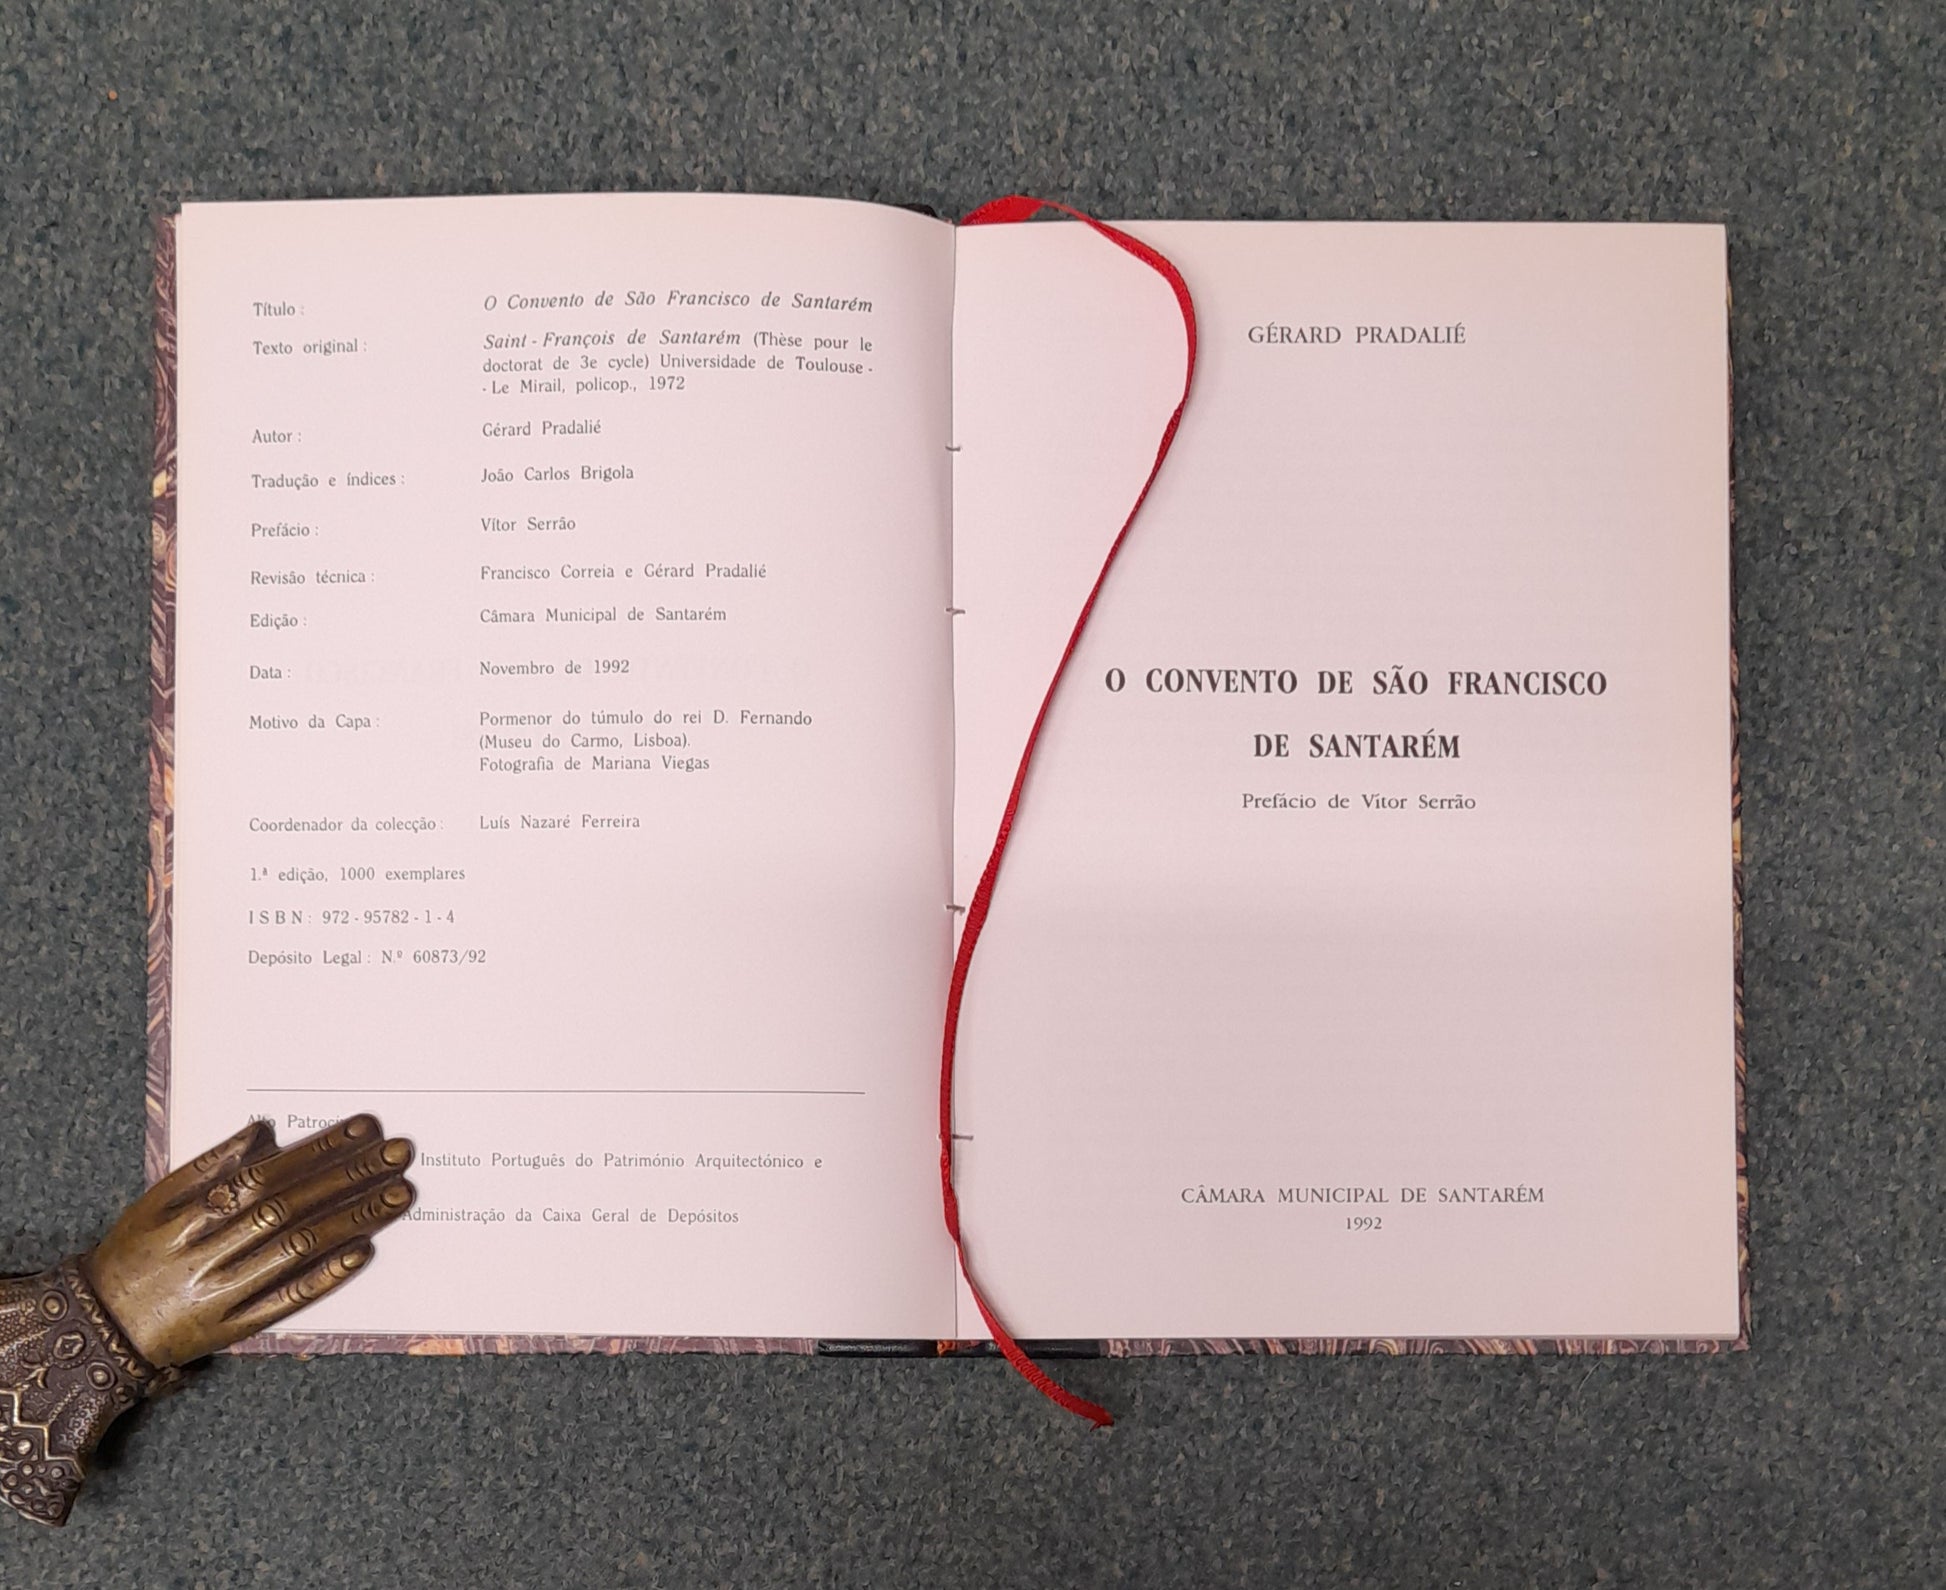 Título : O Convento de São Francisco de Santarém
Texto original : Saint - François de Santarém (Thèse pour le
doctorat de 3e cycle) Universidade de Toulouse -
- Le Mirail, policop., 1972
Autor : Gérard Pradalié
Tradução e índices : João Carlos Brigola
Prefácio : Vítor Serrão
Revisão técnica : Francisco Correia e Gérard Pradalié
Edição : Câmara Municipal de Santarém
Data : Novembro de 1992
Motivo da Capa : Pormenor do túmulo do rei D. Fernando
(Museu do Carmo, Lisboa).
Fotografia de Mariana Viegas
Coordenador da colecção : Luís Nazaré Ferreira
1.ª edição, 1000 exemplares
I S B N : 972 - 95782 - 1 - 4
Depósito Legal : N.º 60873/92
Instituto Português do Património Arquitectónico e
Administração da Caixa Geral de Depósitos
GÉRARD PRADALIÉ
O CONVENTO DE SÃO FRANCISCO
DE SANTARÉM
Prefácio de Vítor Serrão
CÂMARA MUNICIPAL DE SANTARÉM
1992